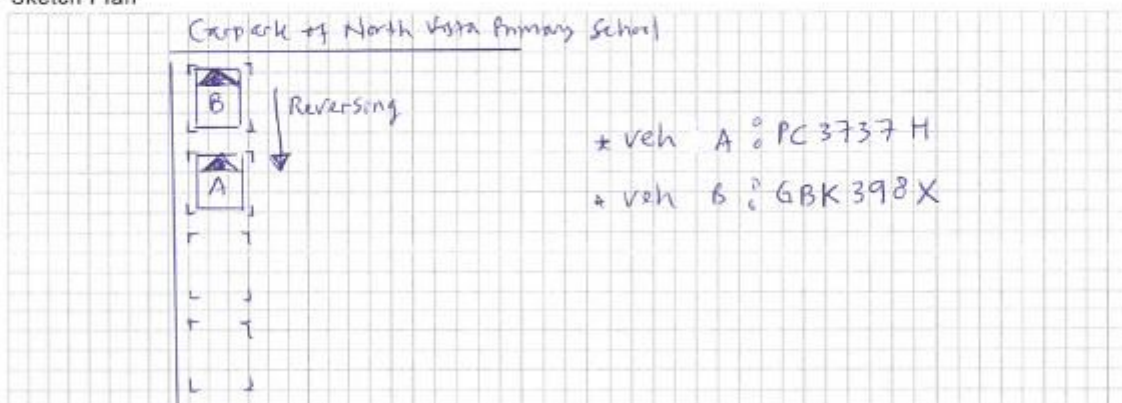 Sketch Plan
Carpark of North Vista Primary School
B
Reversing
A
* veh A : PC 3737 H
* veh B : GBK 398 X